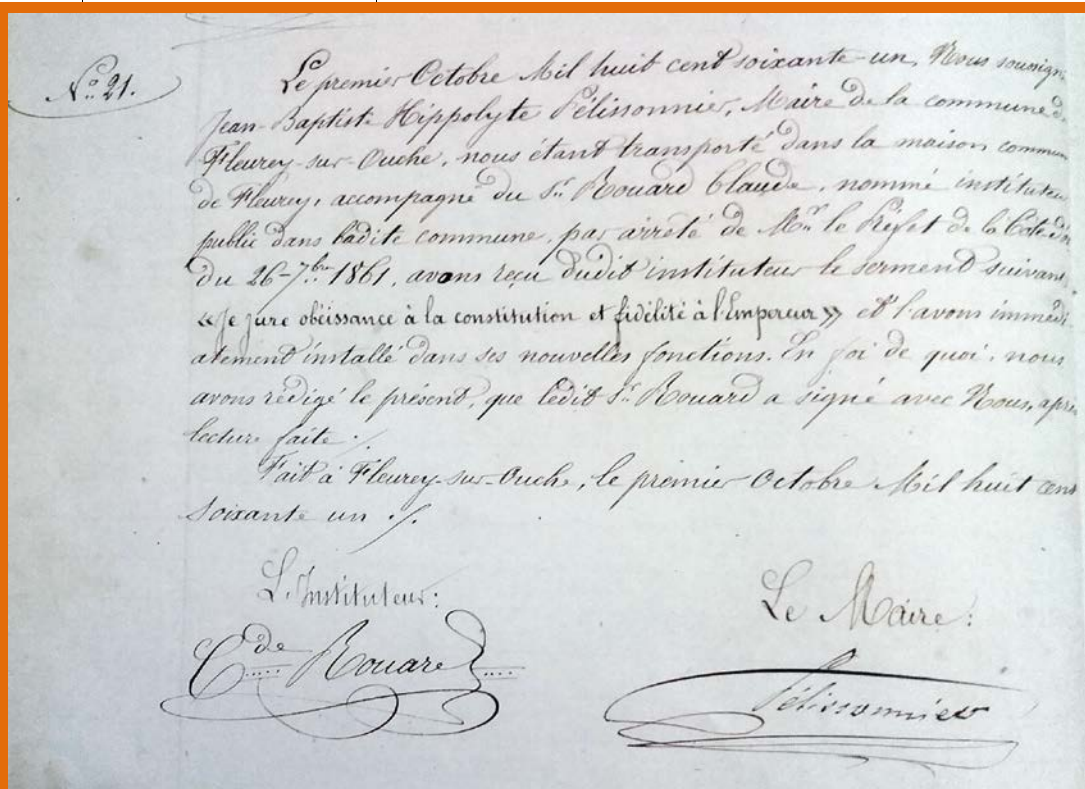 N° 21.
Le premier Octobre Mil huit cent soixante-un, Nous soussigné
Jean-Baptiste Hippolyte Pélissonnier, Maire de la commune de
Fleurey-sur-Ouche, nous étant transporté dans la maison commun
de Fleurey, accompagné du Sr. Rouard Claude, nommé instituteur
public dans ladite commune, par arrêté de Mr. le Préfet de la Côte d'or
du 26-7bre 1861, avons reçu dudit instituteur le serment suivant,
« Je jure obéissance à la constitution et fidélité à l'Empereur » et l'avons immédi-
atement installé dans ses nouvelles fonctions. En foi de quoi, nous
avons rédigé le présent, que ledit Sr. Rouard a signé avec Nous, après
lecture faite ./.
Fait à Fleurey-sur-Ouche, le premier Octobre Mil huit cent
soixante un ./.
L'Instituteur:
Cde Rouard
Le Maire:
Pélissonnier